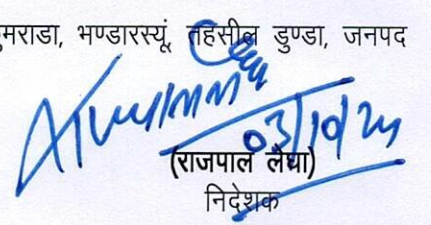 मराडा, भण्डारस्यूं, तहसील डुण्डा, जनपद
03/10/25
(राजपाल लेघा)
निदेशक